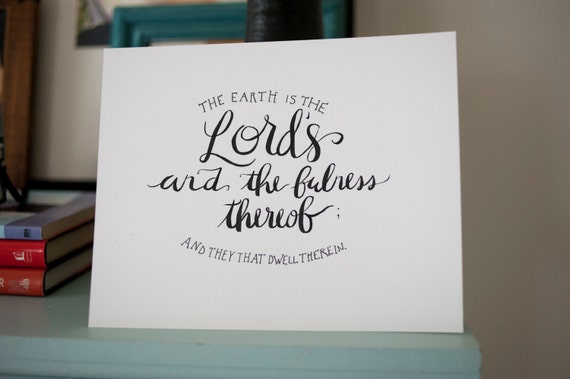 THE EARTH IS THE
Lord's
and the fulness
thereof;
AND THEY THAT DWELL THEREIN.